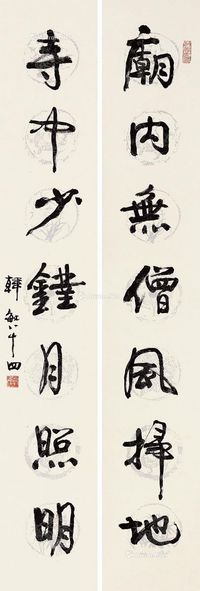 廟内無僧風掃地
寺中少鐙月照明
韓敏八十四